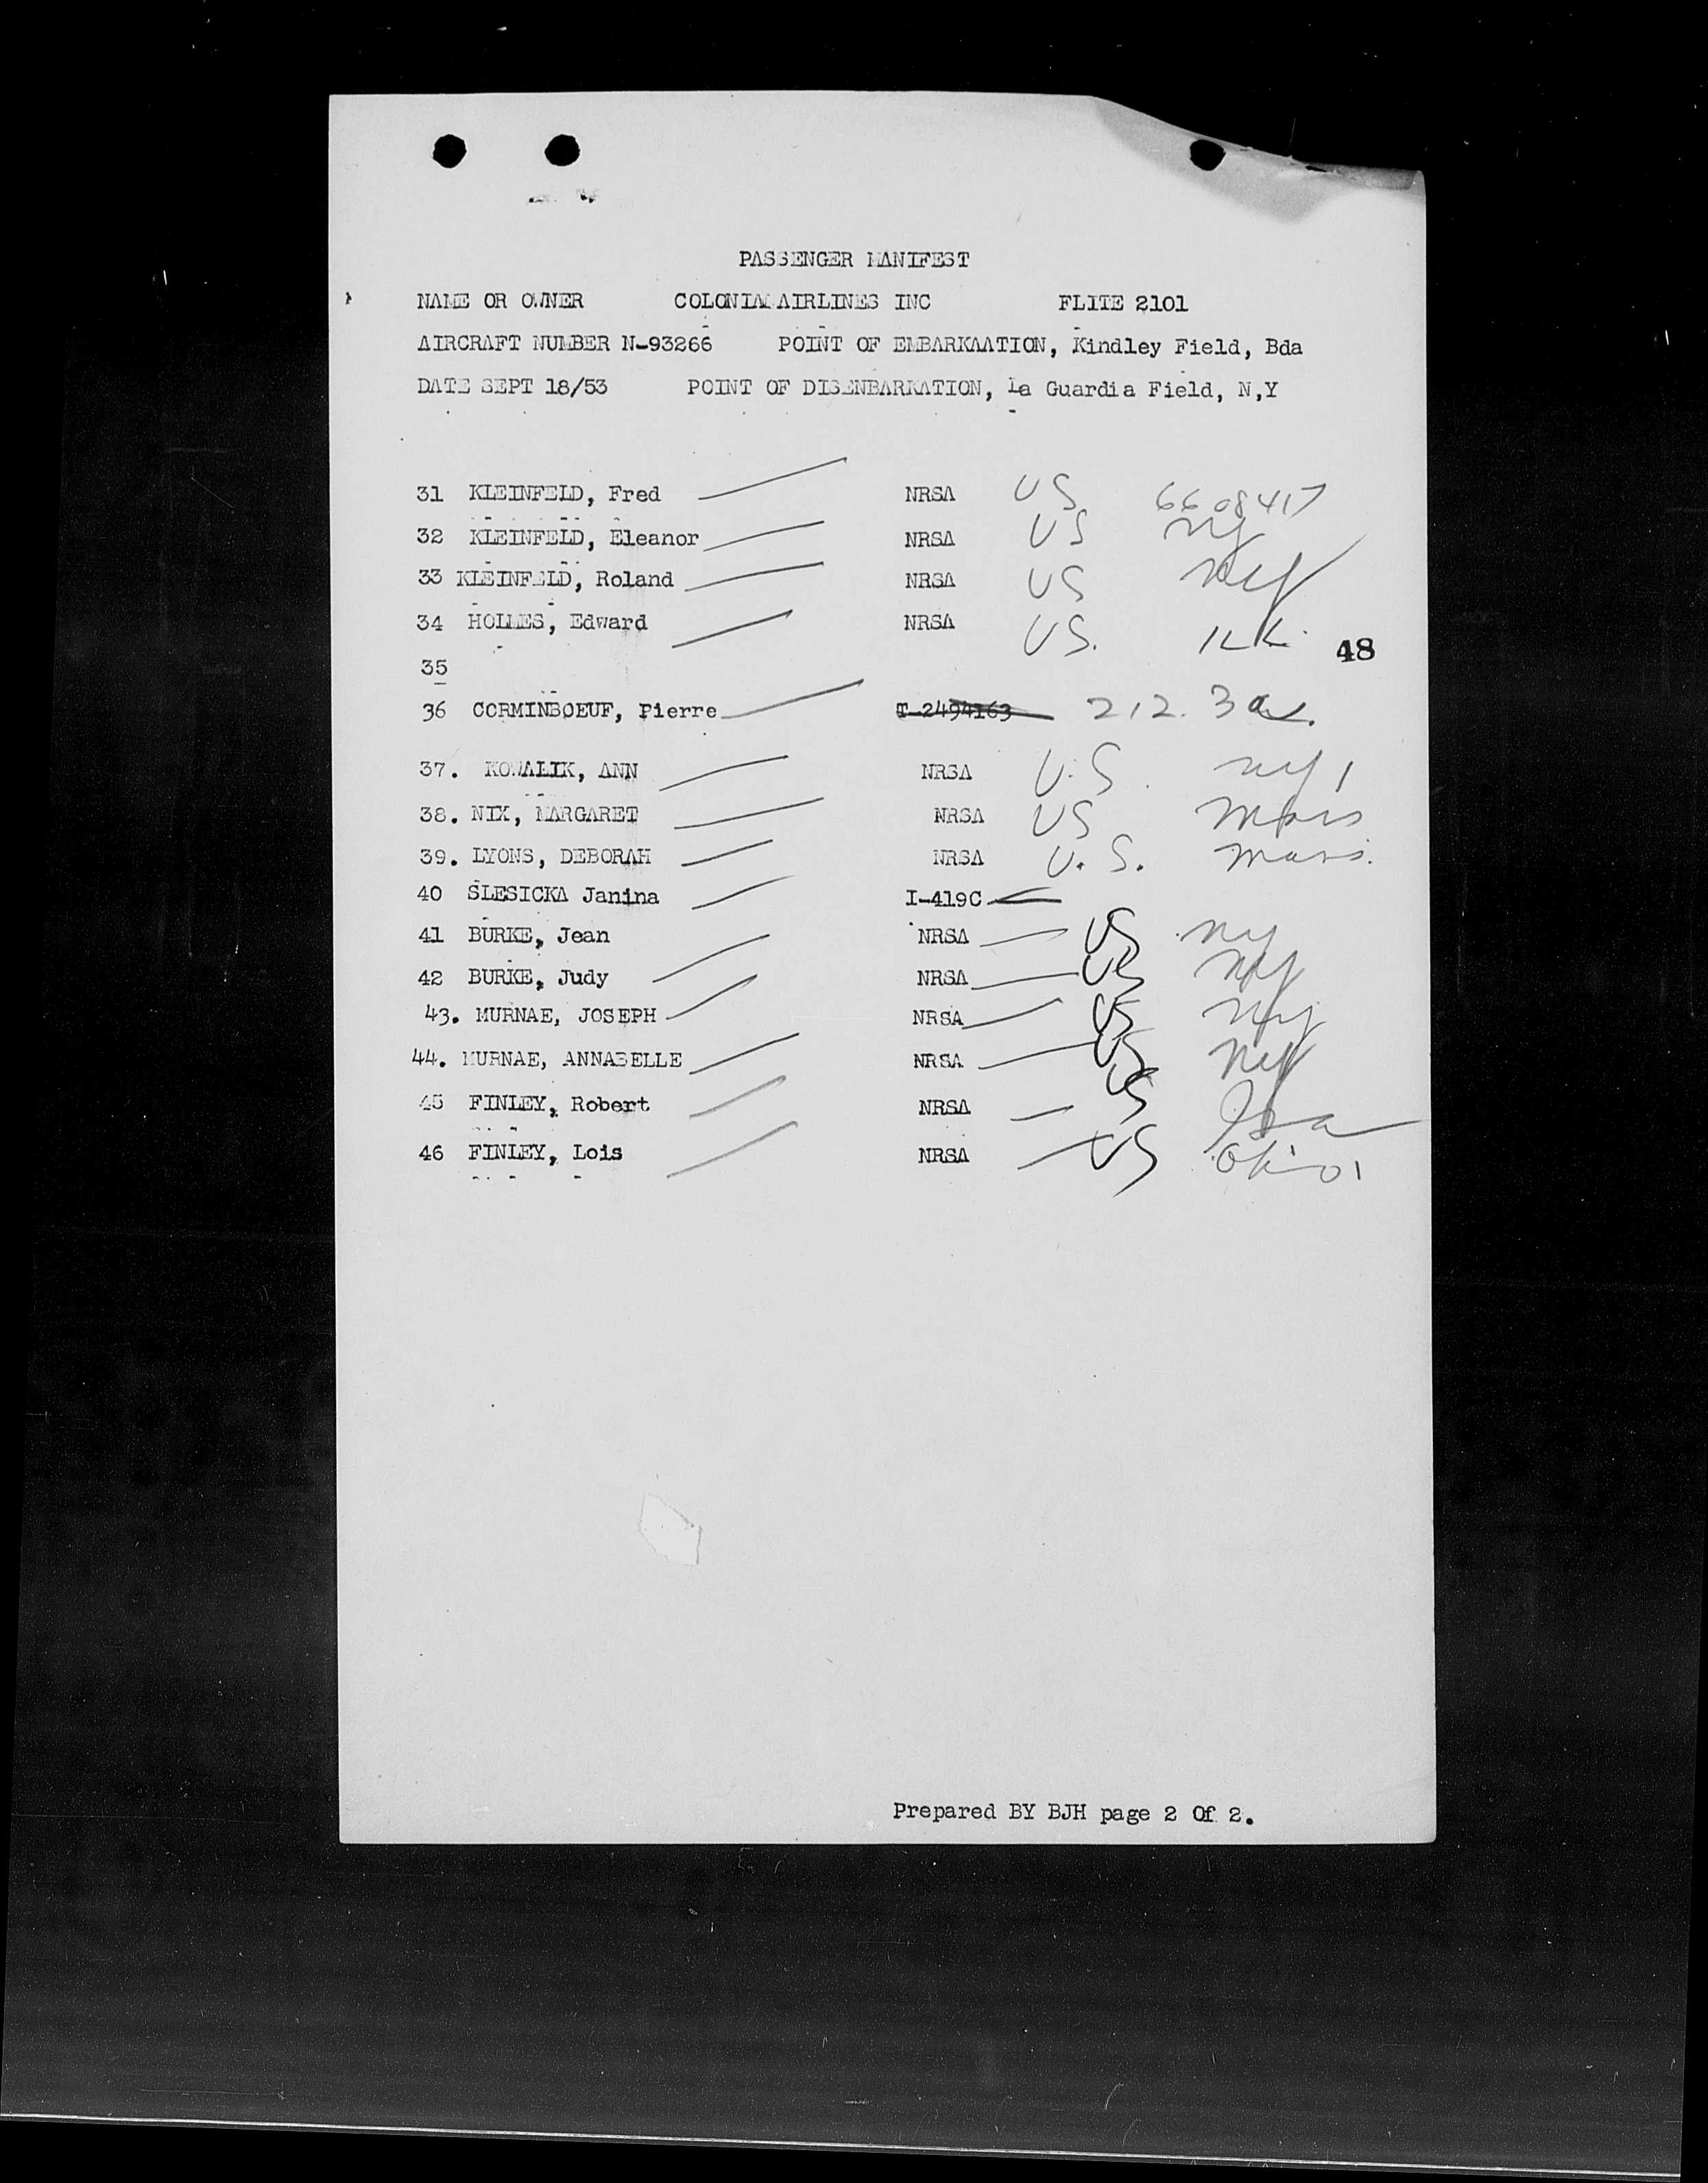 PASSENGER MANIFEST
NAME OR OWNER COLONIAL AIRLINES INC FLITE 2101
AIRCRAFT NUMBER N-93266 POINT OF EMBARKAATION, Kindley Field, Bda
DATE SEPT 18/53 POINT OF DISENBARKATION, La Guardia Field, N,Y
31 KLEINFELD, Fred NRSA US 6608417
32 KLEINFELD, Eleanor NRSA US NY
33 KLEINFELD, Roland NRSA US NY
34 HOLMES, Edward NRSA US. ILL.
48
35
36 CORMINBOEUF, Pierre T-2494163 212.3
37. KOWALIK, ANN NRSA U.S. NY
38. NIX, MARGARET NRSA US Mass
39. LYONS, DEBORAH NRSA U.S. Mass.
40 SLESICKA Janina I-419C
41 BURKE, Jean NRSA US NY
42 BURKE, Judy NRSA US NY
43. MURNAE, JOSEPH NRSA US NY
44. MURNAE, ANNABELLE NRSA US NY
45 FINLEY, Robert NRSA US
46 FINLEY, Lois NRSA US Ohio
Prepared BY BJH page 2 Of 2.